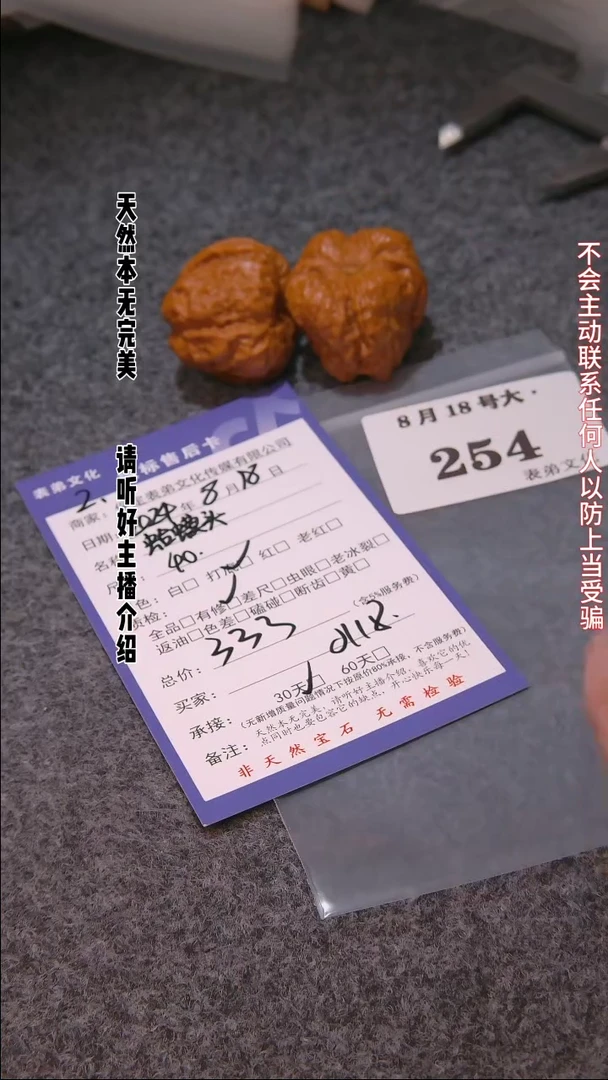 天然本无完美
请听好主播介绍
不会主动联系任何人以防上当受骗
8月18号大·
254
表弟文化
表弟文化 标售后卡
商家: 表弟文化传媒有限公司
日期 024年8月18日
名称 蛤蟆头
尺 40.
色: 白□ 打 红□ 老红□
质检: 全品□有修□差尺□虫眼□老冰裂□
返油□色差□磕碰□断齿□黄□
总价: 333 (含5%服务费)
买家: d118.
承接: 30天□ 60天□
(无新增质量问题情况下按原价80%承接,不含服务费)
备注: 天然本无完美,请听好主播介绍,喜欢它的优
点同时也要包容它的缺点,开心快乐每一天!
非天然宝石 无需检验